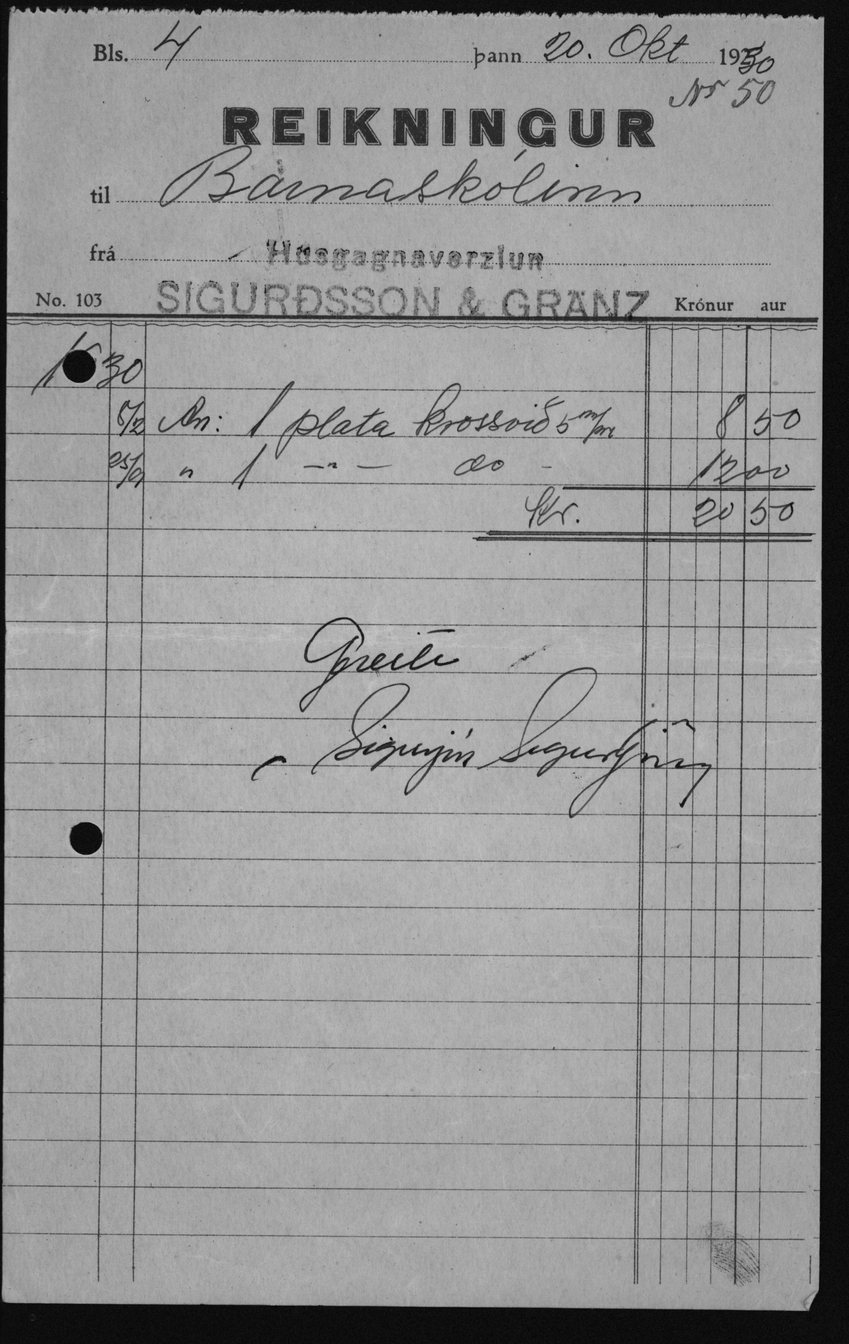 Bls. 4 þann 20. Okt 1930
Nr 50
REIKNINGUR
til Barnaskólinn
frá Húsgagnaverzlun
No. 103 SIGURÐSSON & GRÄNZ Krónur aur
30
5/2 An: 1 plata krossvið 5 m/m 8 50
25/9 " 1 -"- do - 12 00
Kr. 20 50
Greitt
Sigurjón